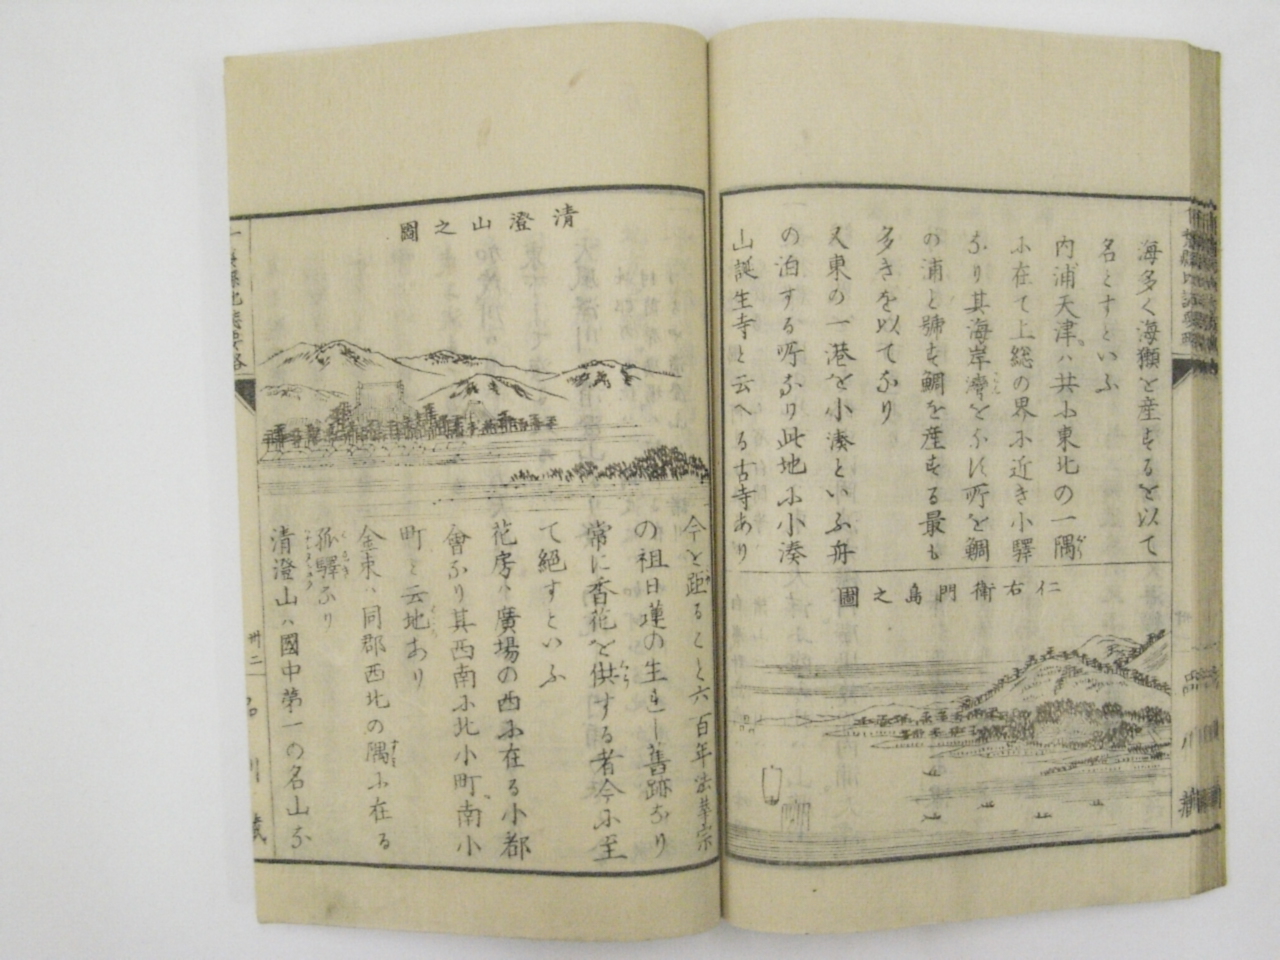 海多く海獺を産するを以て
名とすといふ
内浦天津ハ共ふ東北の一隅
ふ在て上総の界ふ近き小驛
なり其海岸灣をなす所を鯛
の浦と號す鯛を産する最も
多きを以てなり
又東の一港を小湊といふ舟
の泊する所なり此地ふ小湊
山誕生寺と云へる古寺あり
仁右衛門島之圖
清澄山之圖
今を距ること六百年法華宗
の祖日蓮の生れし舊跡なり
常に香花を供する者今ふ至
て絶すといふ
花房ハ廣場の西ふ在る小都
會なり其西南ふ北小町南小
町と云地あり
金束ハ同郡西北の隅ふ在る
孤驛なり
清澄山ハ國中第一の名山な
卅二